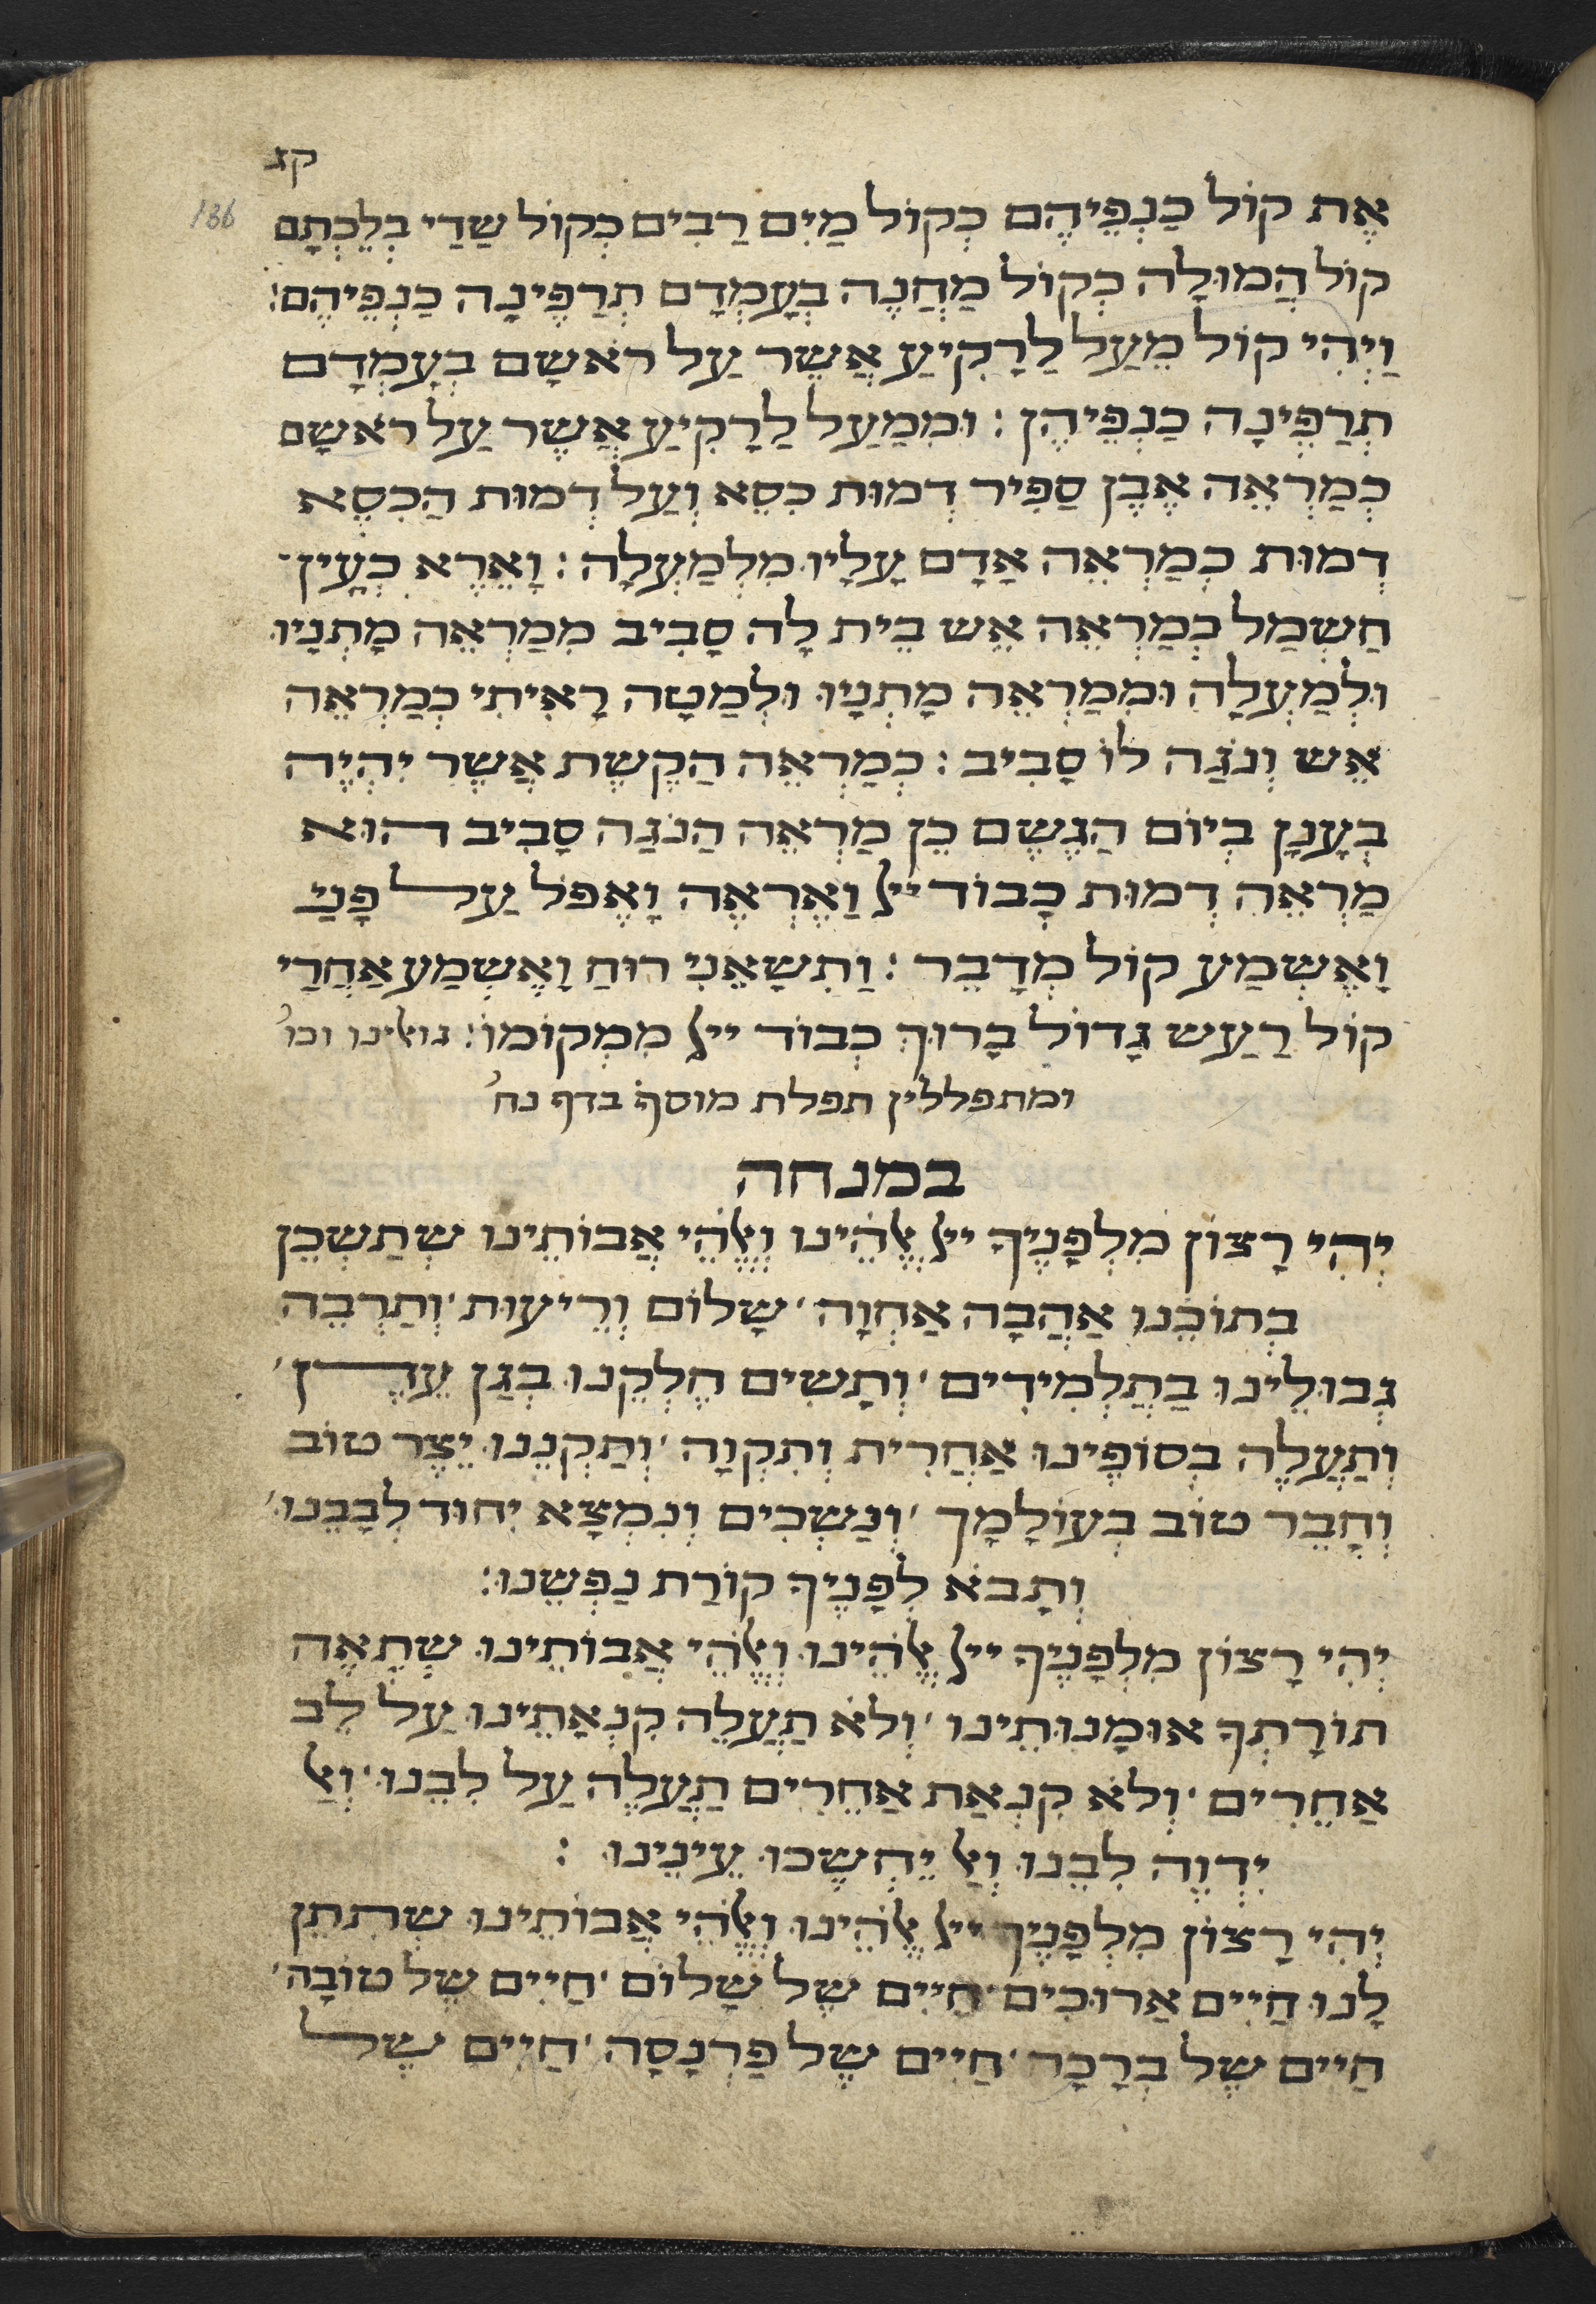 קג
136
אֶת קוֹל כַּנְפֵיהֶם כְּקוֹל מַיִם רַבִּים כְּקוֹל שַׁדַי בְּלֶכְתָּם
קוֹל הֲמוּלָה כְּקוֹל מַחֲנֶה בְּעָמְדָם תְּרַפֶּינָה כַנְפֵיהֶם:
וַיְהִי קוֹל מֵעַל לָרָקִיעַ אֲשֶׁר עַל רֹאשָׁם בְּעָמְדָם
תְּרַפֶּינָה כַנְפֵיהֶן: וּמִמַּעַל לָרָקִיעַ אֲשֶׁר עַל רֹאשָׁם
כְּמַרְאֵה אֶבֶן סַפִּיר דְּמוּת כִּסֵּא וְעַל דְּמוּת הַכִּסֵּא
דְּמוּת כְּמַרְאֵה אָדָם עָלָיו מִלְמַעְלָה: וָאֵרֶא כְּעֵין־
חַשְׁמַל כְּמַרְאֵה אֵשׁ בֵּית לָהּ סָבִיב מִמַּרְאֵה מָתְנָיו
וּלְמַעְלָה וּמִמַּרְאֵה מָתְנָיו וּלְמַטָּה רָאִיתִי כְּמַרְאֵה
אֵשׁ וְנֹגַהּ לוֹ סָבִיב: כְּמַרְאֵה הַקֶּשֶׁת אֲשֶׁר יִהְיֶה
בְעָנָן בְּיוֹם הַגֶּשֶׁם כֵּן מַרְאֵה הַנֹּגַהּ סָבִיב הוּא
מַרְאֵה דְּמוּת כְּבוֹד ייל וָאֶרְאֶה וָאֶפֹּל עַל פָּנַי
וָאֶשְׁמַע קוֹל מְדַבֵּר: וַתִּשָּׂאֵנִי רוּחַ וָאֶשְׁמַע אַחֲרַי
קוֹל רַעַשׁ גָּדוֹל בָּרוּךְ כְּבוֹד ייל מִמְּקוֹמוֹ: גואלינו וכו'
ומתפללין תפלת מוסף בדף נח'
במנחה
יְהִי רָצוֹן מִלְּפָנֶיךָ ייל אֱלֹהֵינוּ וֶאֱלֹהֵי אֲבוֹתֵינוּ שֶׁתַּשְׁכֵּן
בְּתוֹכֵנוּ אַהֲבָה אַחֲוָה' שָׁלוֹם וְרֵיעוּת' וְתַרְבֶּה
גְּבוּלֵינוּ בַּתַלְמִידִים' וְתָשִׂים חֶלְקֵנוּ בְּגַן עֵדֶן'
וְתַעֲלֶה בְּסוֹפֵינוּ אַחֲרִית וְתִקְוָה' וְתַקְּנֵנוּ יֵצֶר טוֹב
וְחָבֵר טוֹב בְּעוֹלָמָךְ' וְנַשְׁכִּים וְנִמְצָא יִחוּד לְבָבֵנוּ'
וְתָבֹא לְפָנֶיךָ קוֹרַת נַפְשֵׁנוּ:
יְהִי רָצוֹן מִלְּפָנֶיךָ ייל אֱלֹהֵינוּ וֶאֱלֹהֵי אֲבוֹתֵינוּ שֶׁתְּאֵה
תוֹרָתְךָ אוּמָנוּתֵינוּ' וְלֹא תַעֲלֶה קִנְאָתֵינוּ עַל לֵב
אַחֵרִים' וְלֹא קִנְאַת אַחֵרִים תַּעֲלֶה עַל לִבֵּנוּ' וְאַל
יִדְוֶה לִבֵּנוּ וְאַל יֵחְשְׁכוּ עֵינֵינוּ:
יְהִי רָצוֹן מִלְּפָנֶיךָ ייל אֱלֹהֵינוּ וֶאֱלֹהֵי אֲבוֹתֵינוּ שֶׁתִּתֵּן
לָנוּ חַיִּים אֲרוּכִים' חַיִּים שֶׁל שָׁלוֹם' חַיִּים שֶׁל טוֹבָה'
חַיִּים שֶׁל בְּרָכָה' חַיִּים שֶׁל פַּרְנָסָה' חַיִּים שֶׁל